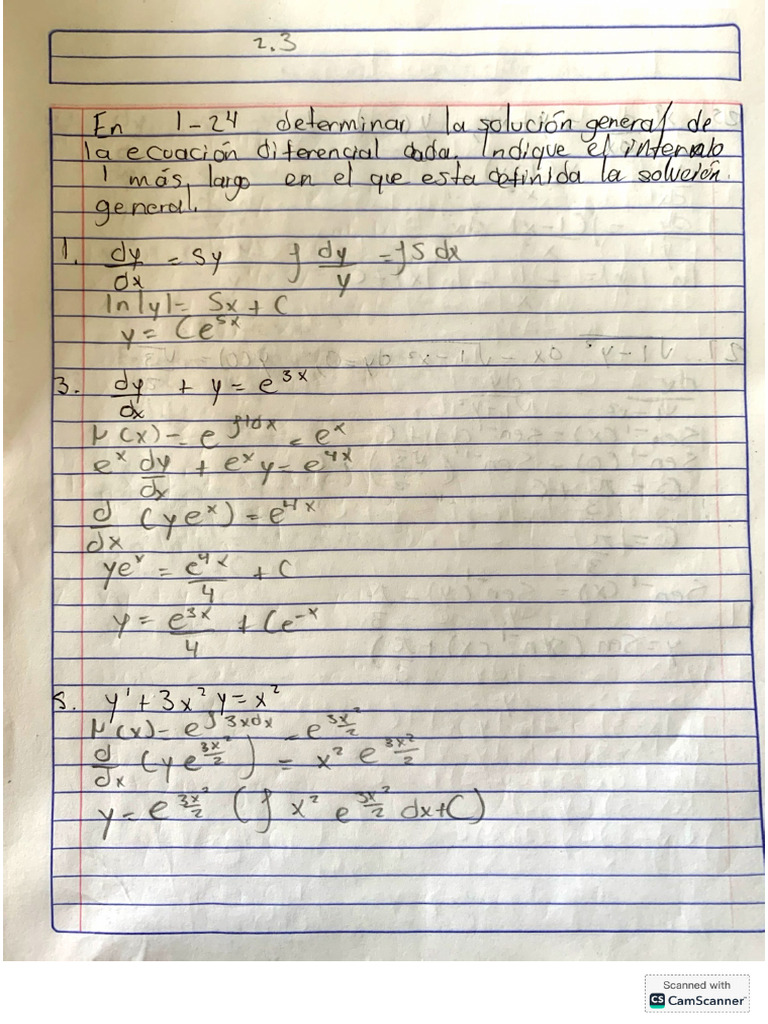 2.3
En 1-24 determinar la solución general de
la ecuación diferencial dada. Indique el intervalo
1 más largo en el que esta definida la solución
general.
1. dy/dx = 5y ∫ dy/y = ∫ 5 dx
ln|y| = 5x + C
y = Ce^5x
3. dy/dx + y = e^3x
μ(x) = e^∫1dx = e^x
e^x dy/dx + e^x y = e^4x
d/dx (ye^x) = e^4x
ye^x = e^4x/4 + C
y = e^3x/4 + Ce^-x
5. y' + 3x² y = x²
μ(x) = e^∫3xdx = e^3x²/2
d/dx (ye^3x²/2) = x² e^3x²/2
y = e^3x²/2 (∫ x² e^3x²/2 dx+C)
Scanned with
CS CamScanner